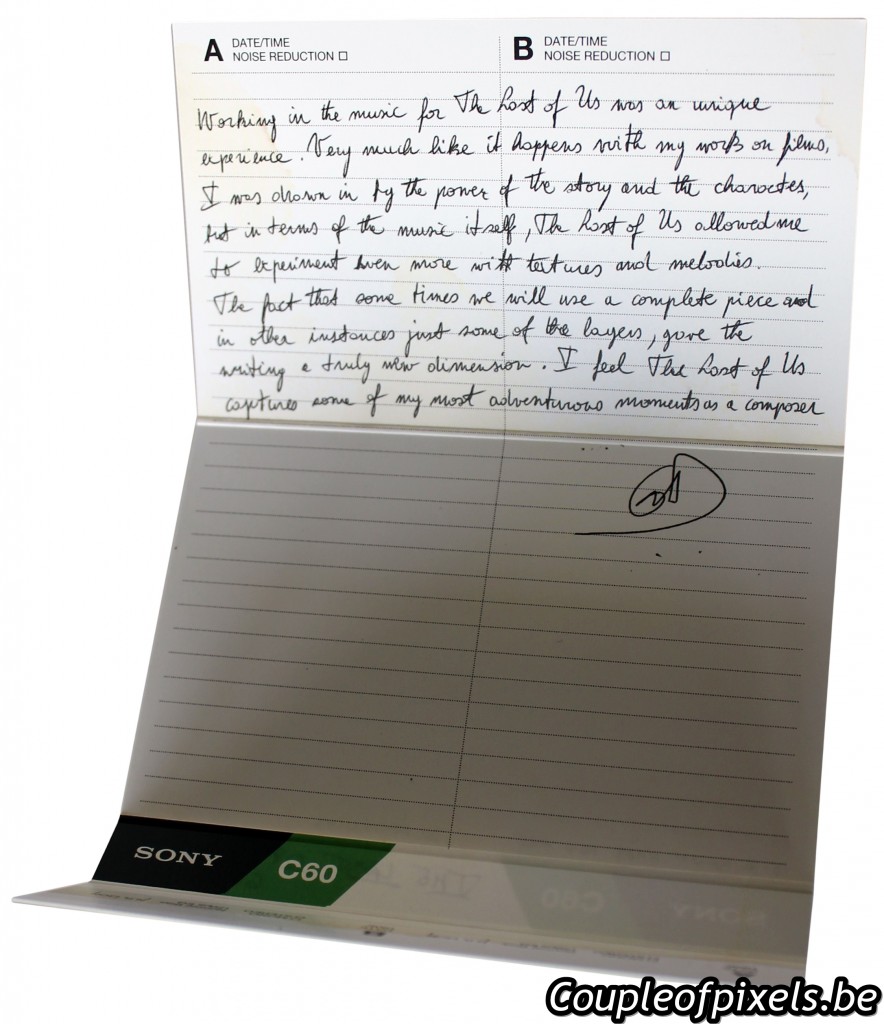 A DATE/TIME B DATE/TIME
NOISE REDUCTION □ NOISE REDUCTION □
Working in the music for The Last of Us was an unique
experience. Very much like it happens with my work on films,
I was drawn in by the power of the story and the charactes,
but in terms of the music itself, The Last of Us allowed me
to experiment even more with textures and melodies.
The fact that some times we will use a complete piece and
in other instances just some of the layers, gave the
writing a truly new dimension. I feel The Last of Us
captures some of my most adventurous moments as a composer
SONY C60
Coupleofpixels.be